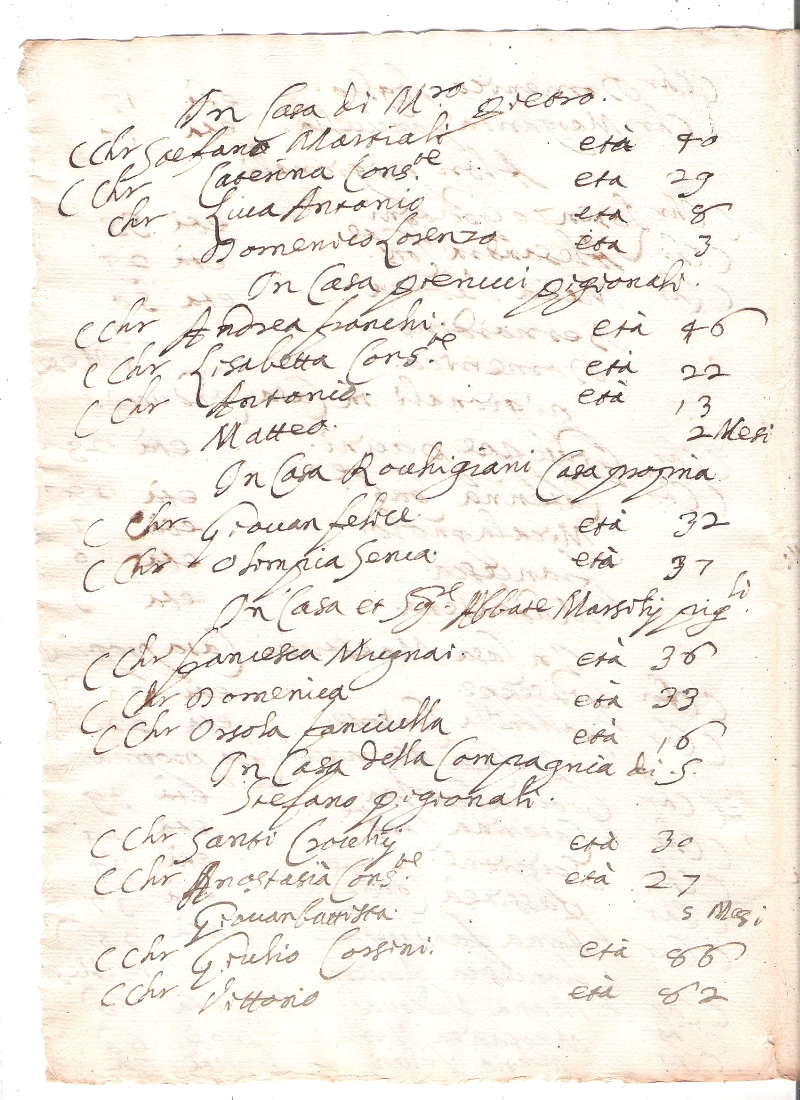 In Casa di M.ro Pietro.
C Chr Stefano Martiali età 40
C Chr Caterina Cons.te età 29
Chr Luca Antonio età 8
Domenico Lorenzo età 3
In Casa Pienucci pigionali.
C Chr Andrea franchi. età 46
C Chr Lisabetta Cons.te età 22
C Chr Antonio. età 13
Matteo. 2 Mesi
In Casa Rocchigiani Casa propria
C Chr Giovan felice età 32
C Chr Olimpia Senca. età 37
In Casa et Sig.e Abbate Marsilij pig.li
C Chr francesca Mugnai. età 36
C Chr Domenica età 33
C Chr Orsola fanciulla età 16
In Casa della Compagnia di S.
Stefano pigionali.
C Chr Santi età 30
C Chr Anastasià Cons.te età 27
Giovanbattista. 5 Mesi
C Chr Giulio Corsini. età 86
C Chr Vittorio età 82